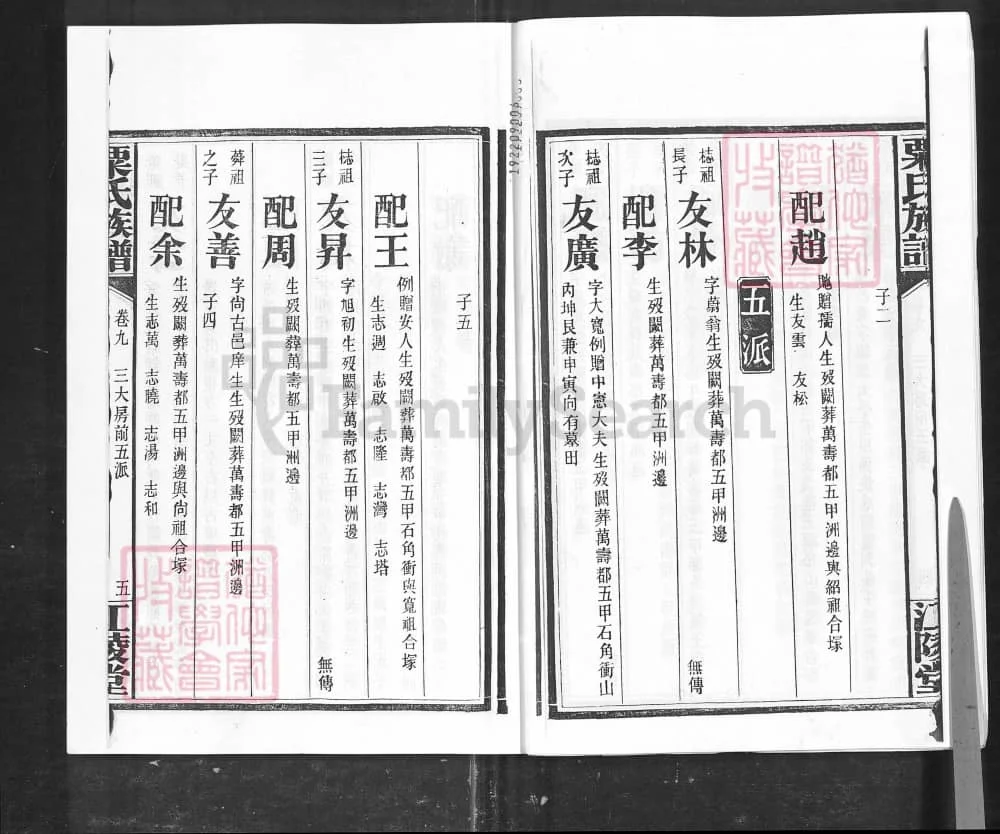 栗氏族譜
江陵堂
子二
配趙
貤贈孺人生歿闕葬萬壽都五甲洲邊與紹祖合塚
生友雲 友松
五派
梽祖長子
友林
字蔚翁生歿闕葬萬壽都五甲洲邊 無傳
配李
生歿闕葬萬壽都五甲洲邊
梽祖次子
友廣
字大寬例贈中憲大夫生歿闕葬萬壽都五甲石角衝山
內坤艮兼申寅向有墓田
子五
配王
例贈安人生歿闕葬萬壽都五甲石角衝與寬祖合塚
生志週 志啟 志隆 志灣 志塔
梽祖三子
友昇
字旭初生歿闕葬萬壽都五甲洲邊 無傳
配周
生歿闕葬萬壽都五甲洲邊
葬祖之子
友善
字尚古邑庠生生歿闕葬萬壽都五甲洲邊
子四
配余
生歿闕葬萬壽都五甲洲邊與尚祖合塚
生志萬 志曉 志湯 志和
栗氏族譜
卷九 三大房前五派
五
江陵堂
FamilySearch